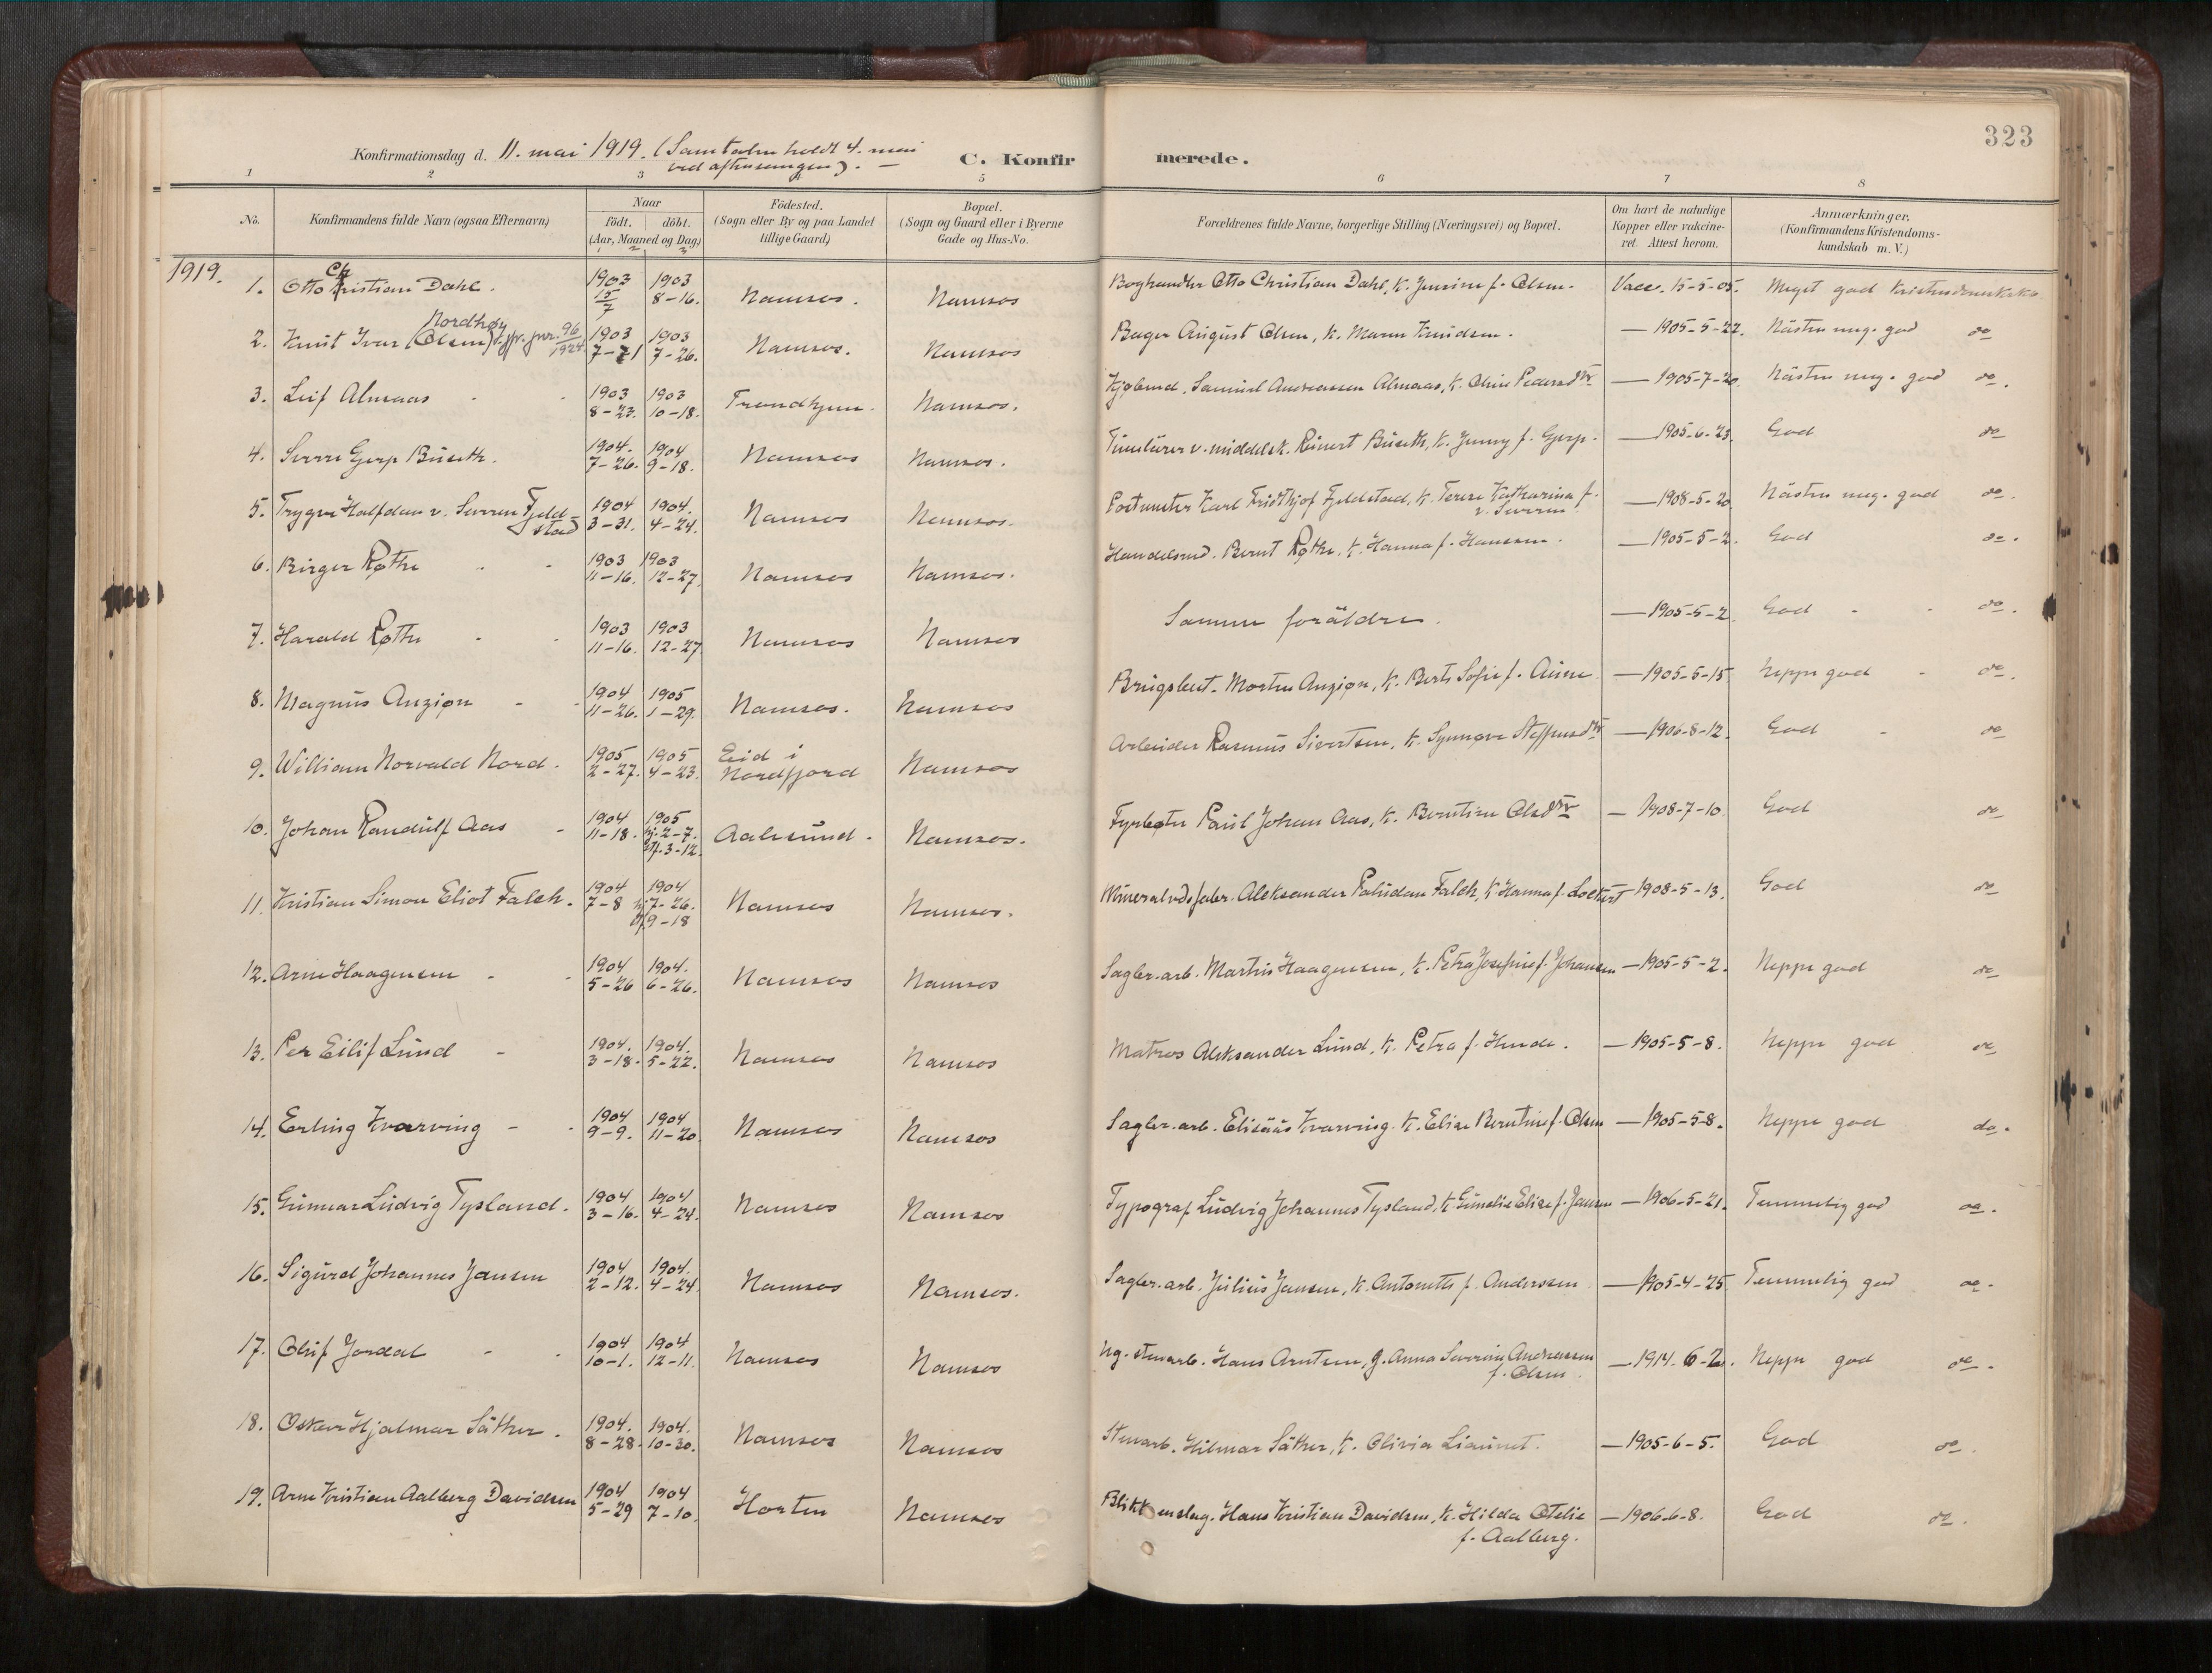 323
Konfirmationsdag d. 11. mai 1919. (Samtalen holdt 4. mai
ved aftensangen). —
C. Konfirmerede.
1 2 3 4 5 6 7 8
No.
Konfirmandens fulde Navn (ogsaa Efternavn)
Naar
födt. döbt.
(Aar, Maaned og Dag)
1 2 3
Födested.
(Sogn eller By og paa Landet
tillige Gaard)
Bopæl.
(Sogn og Gaard eller i Byerne
Gade og Hus-No.
Forældrenes fulde Navne, borgerlige Stilling (Næringsvei) og Bopæl.
Om havt de naturlige
Kopper eller vakcine-
ret. Attest herom.
Anmærkninger.
(Konfirmandens Kristendoms-
kundskab m. V.)
1919.
1. Otto Christian Dahl. 1903 15/7 1903 8-16. Namsos. Namsos Boghandler Otto Christian Dahl, k. Jensine f. Olsen. Vacc. 15-5-05. Meget god kristendomskskp
2. Knut Ivar (Olsen) Nordhøy jfr. jnr. 96/1924 1903 7-21 1903 7-26. Namsos. Namsos Bager August Olsen, k. Maren Knudsen. — 1905-5-22. Nästen meg. god do
3. Leif Almaas 1903 8-23. 1903 10-18. Trondhjem. Namsos. Kjøbmd. Samuel Andreassen Almaas, k. Oline Pedersdtr — 1905-7-20. Nästen meg. god do.
4. Sverre Gjerp Buseth. 1904. 7-26. 1904 9-18. Namsos Namsos. Timelærer v. middelsk. Reinert Buseth, k. Jenny f. Gjerp. — 1905-6-23. God do
5. Trygve Halfdan v. Severen Fjeld-
stad 1904 3-31. 1904. 4-24. Namsos Namsos. Postmester Karl Fridthjof Fjeldstad, k. Terese Katharina f.
v. Severen — 1908-5-20 Nästen meg. god do.
6. Birger Røthe 1903 11-16. 1903 12-27. Namsos Namsos. Handelsmd. Bernt Røthe, k. Hanna f. Hanssen. — 1905-5-2. God do.
7. Harald Røthe 1903 11-16. 1903 12-27 Namsos Namsos Samme forældre. — 1905-5-2. God do.
8. Magnus Anziøn 1904 11-26. 1905 1-29. Namsos. Namsos Brugsbest. Morten Anziøn, k. Berts Sofie f. Aune — 1905-5-15 Neppe god do.
9. William Norvald Nord. 1905 2-27. 1905 4-23. Eid i
Nordfjord Namsos Arbeider Rasmus Sivertsen, k. Synnøve Steffensdtr — 1906-8-12. God do
10. Johan Randulf Aas 1904 11-18. 1905 hj. 2-7. stf. 3-12. Aalesund. Namsos. Fyrbøter Paul Johan Aas, k. Berntine Olsdtr — 1908-7-10 God do
11. Kristian Simon Eliot Falch. 1904 7-8 1904 hj. 7-26. 9-18 Namsos Namsos. Mineralvdsfabr. Aleksander Paludan Falch, k. Hanna f. Lockert — 1908-5-13. God do
12. Arne Haagensen 1904 5-26 1904. 6-26. Namsos Namsos Sagbr. arb. Martin Haagensen, k. Petra Josefine f. Johansen — 1905-5-2. Neppe god do
13. Per Eilif Lund 1904. 3-18. 1904. 5-22. Namsos Namsos Matros Aleksander Lund, k. Petra f. — 1905-5-8. Neppe god do
14. Erling Kvarving 1904 9-9. 1904 11-20 Namsos Namsos Sagbr. arb. Elisäus Kvarving. k. Elise Berntine f. Olsen — 1905-5-8. Neppe god do.
15. Gunnar Ludvig Tysland. 1904 3-16. 1904 4-24. Namsos Namsos Typograf Ludvig Johannes Tysland, k. Elise f. Jansen — 1906-5-21. Temmelig god do.
16. Sigurd Johannes Jansen 1904 2-12. 1904. 4-24. Namsos Namsos. Sagbr. arb. Julius Jansen, k. Antonette f. Anderssen — 1905-4-25 Temmelig god do.
17. Oluf Jordal 1904 10-1. 1904 12-11. Namsos Namsos Ug. stenarb. Hans Arntsen, g. Anna Severine Andreassen
f. Olsen — 1914-6-2. Neppe god do.
18. Oskar Hjalmar Säther. 1904. 8-28. 1904. 10-30. Namsos Namsos Stenarb. Hilmar Säther, k. Olivia — 1905-6-5. God do.
19. Arne Kristian Aalberg Davidsen 1904 5-29 1904 7-10. Horten Namsos Blikkenslag. Hans Kristian Davidsen, k. Hilda Otelie
f. Aalberg. — 1906-6-8. God do.